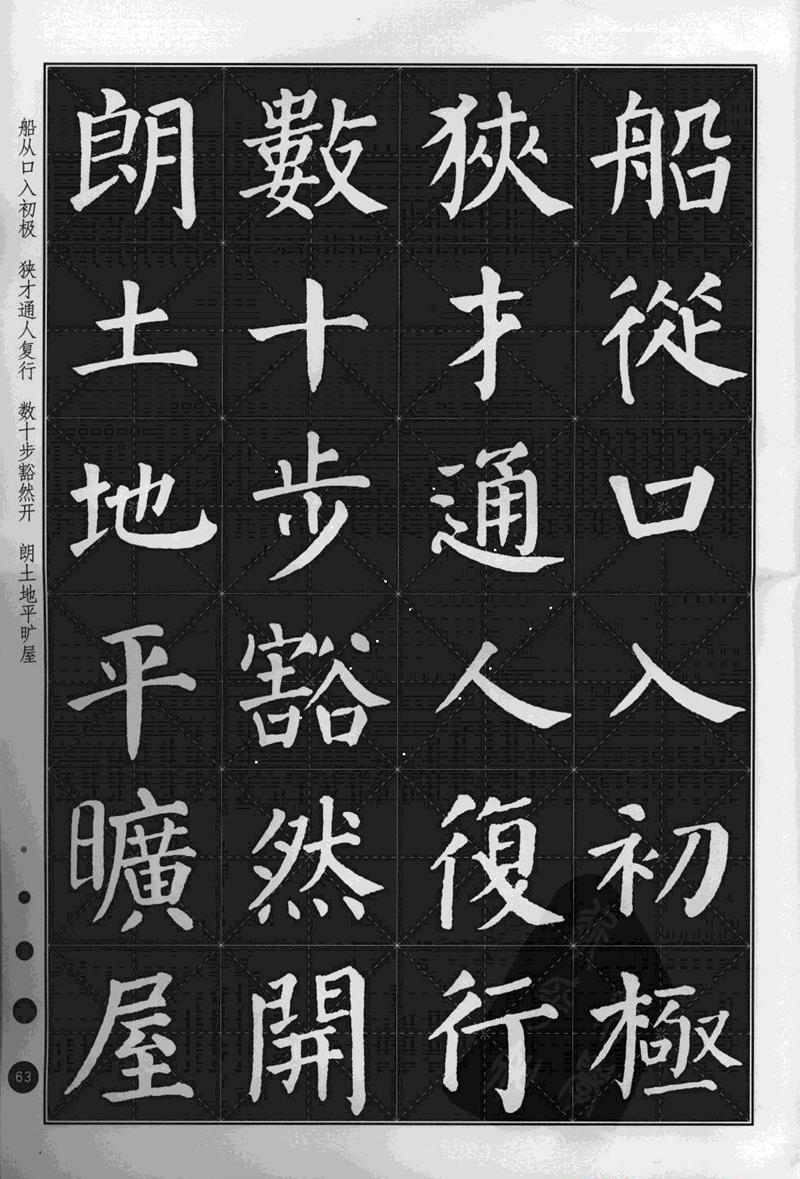 船從口入初極
狹才通人復行
數十步豁然開
朗土地平曠屋
船从口入初极 狭才通人复行 数十步豁然开 朗土地平旷屋
63